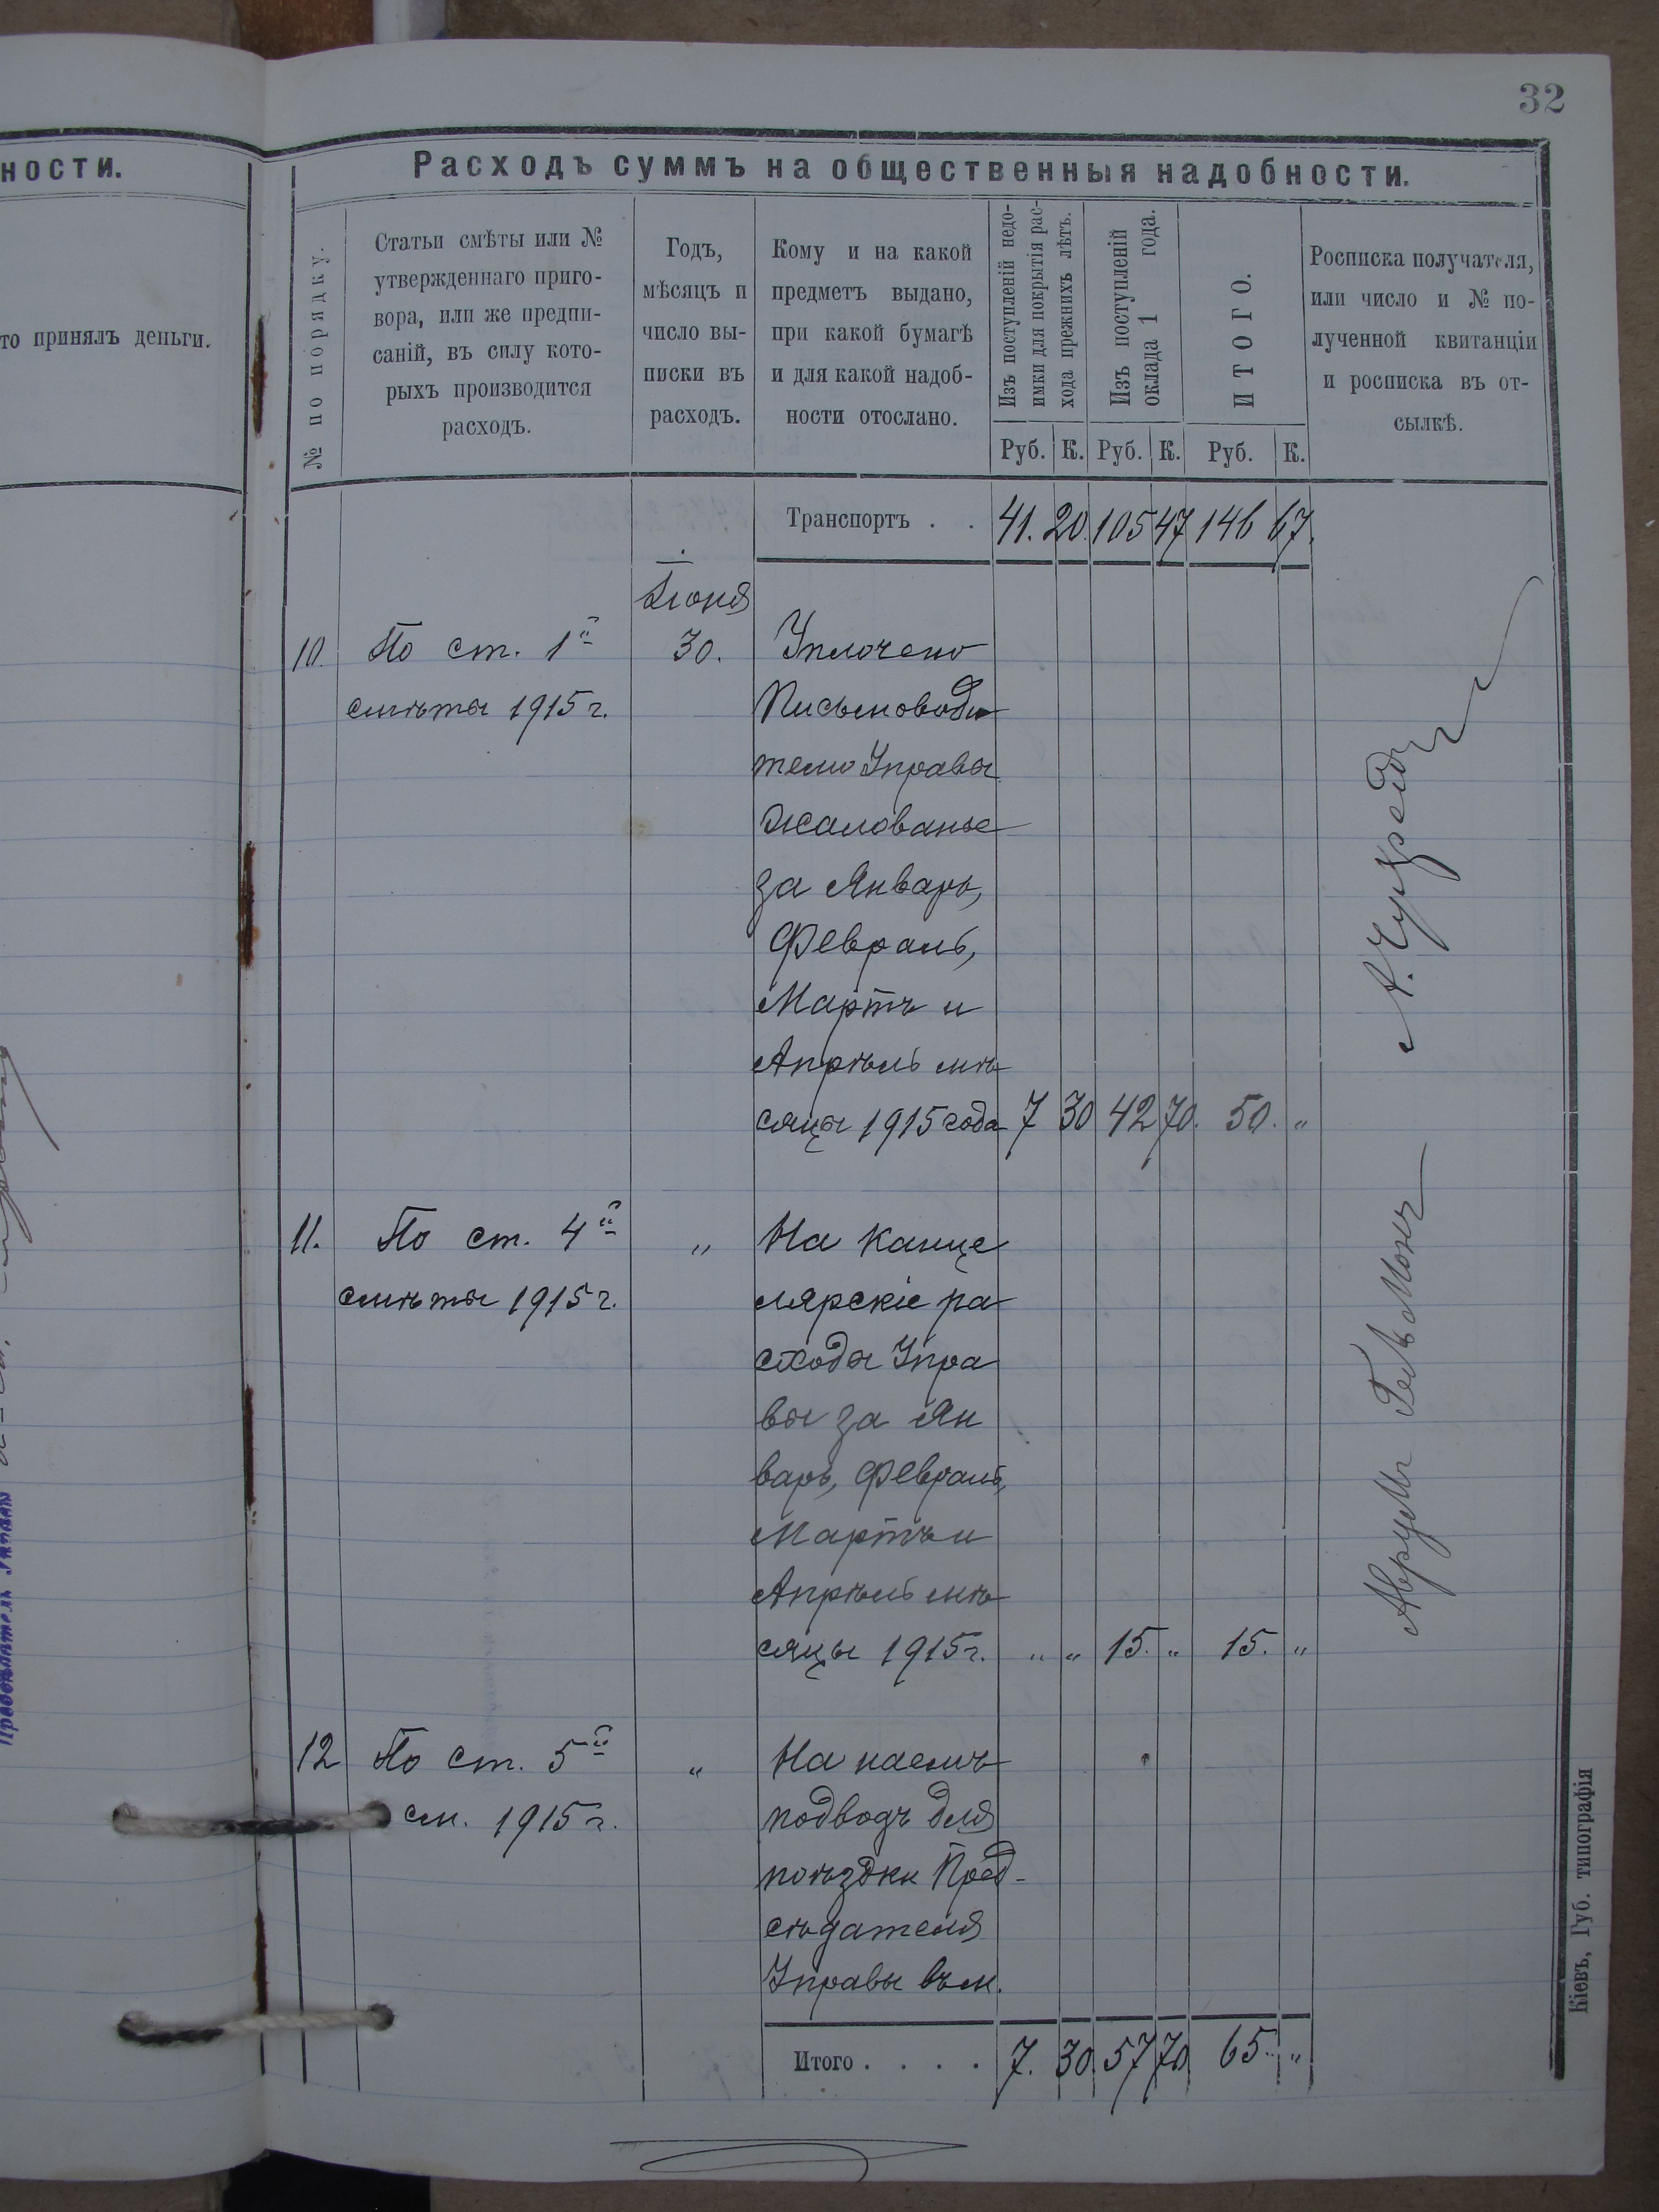 32
ности.
Расходъ суммъ на общественныя надобности.
то принялъ деньги.
№ по порядку.
Статьи смѣты или №
утвержденнаго приго-
вора, или же предпи-
саній, въ силу кото-
рыхъ производится
расходъ.
Годъ,
мѣсяцъ и
число вы-
писки въ
расходъ.
Кому и на какой
предметъ выдано,
при какой бумагѣ
и для какой надоб-
ности отослано.
Изъ поступленій недо-
имки для покрытія рас-
хода прежнихъ лѣтъ.
Изъ поступленій
оклада 1 года.
ИТОГО.
Росписка получателя,
или число и № по-
лученной квитанціи
и росписка въ от-
сылкѣ.
Руб. К. Руб. К. Руб. К.
Транспортъ . . 41. 20. 105 47 146 67.
Іюня
10. По ст. 1й 30. Уплочено
смѣты 1915 г. Письмоводи
телю Управы
жалованье
за Январь,
Февраль,
Мартъ и
Апрѣль мѣ
сяцы 1915 года 7 30 42 70. 50. „
11. По ст. 4й „ На канце
смѣты 1915 г. лярскіе ра
сходы Упра
вы за Ян
варь, Февраль,
Мартъ и
Апрѣль мѣ
сяцы 1915 г. „ „ 15. „ 15. „
Аврумъ Гельмонъ
12 По ст. 5й „ На наемъ
см. 1915 г. подводъ для
поѣздки Пред-
сѣдателя
Управы въ м.
Итого . . . . 7. 30. 57 70 65. „
Кіевъ, Губ. типографія